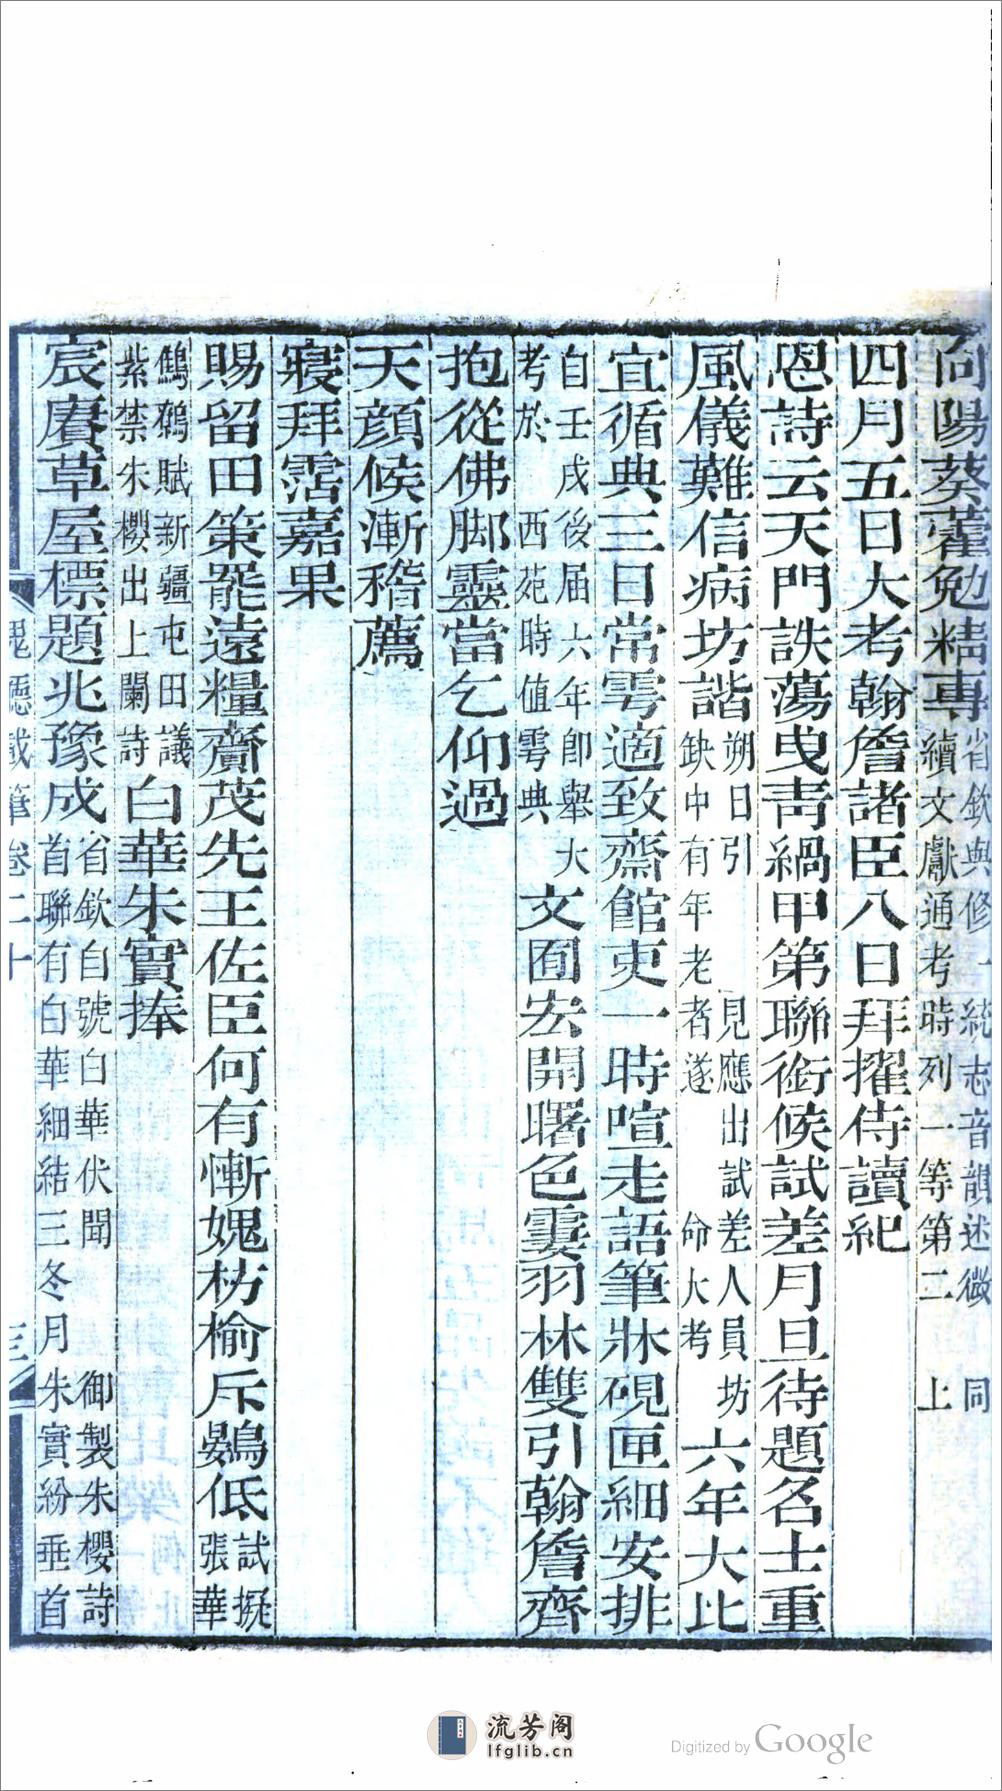 向陽葵藿勉精專省欽與修一統志音韻述微同續文獻通考時列一等第二上
四月五日大考翰詹諸臣八日拜擢侍讀紀
恩詩云天門詄蕩曳靑緺甲第聯銜候試差月旦待題名士重
風儀難信病坊諧朔日引見應出試差人員坊缺中有年老者遂命大考六年大比
宜循典三日常雩適致齋館吏一時喧走語筆牀硯匣細安排
自壬戌後届六年卽舉大考於西苑時值雩典文囿宏開曙色霎羽林雙引翰詹齊
抱從佛脚靈當乞仰過
天顏候漸稽薦
寢拜霑嘉果
賜留田策罷遠糧齎茂先王佐臣何有慚媿枋榆斥鷃低試擬張華
鷦鷯賦新疆屯田議紫禁朱櫻出上闌詩白華朱實捧
宸賡草屋標題兆豫成省欽自號白華伏聞御製朱櫻詩首聯有白華細結三冬月朱實紛垂首
聽載筆卷二十
三
流芳阁
lfglib.cn
Digitized by Google